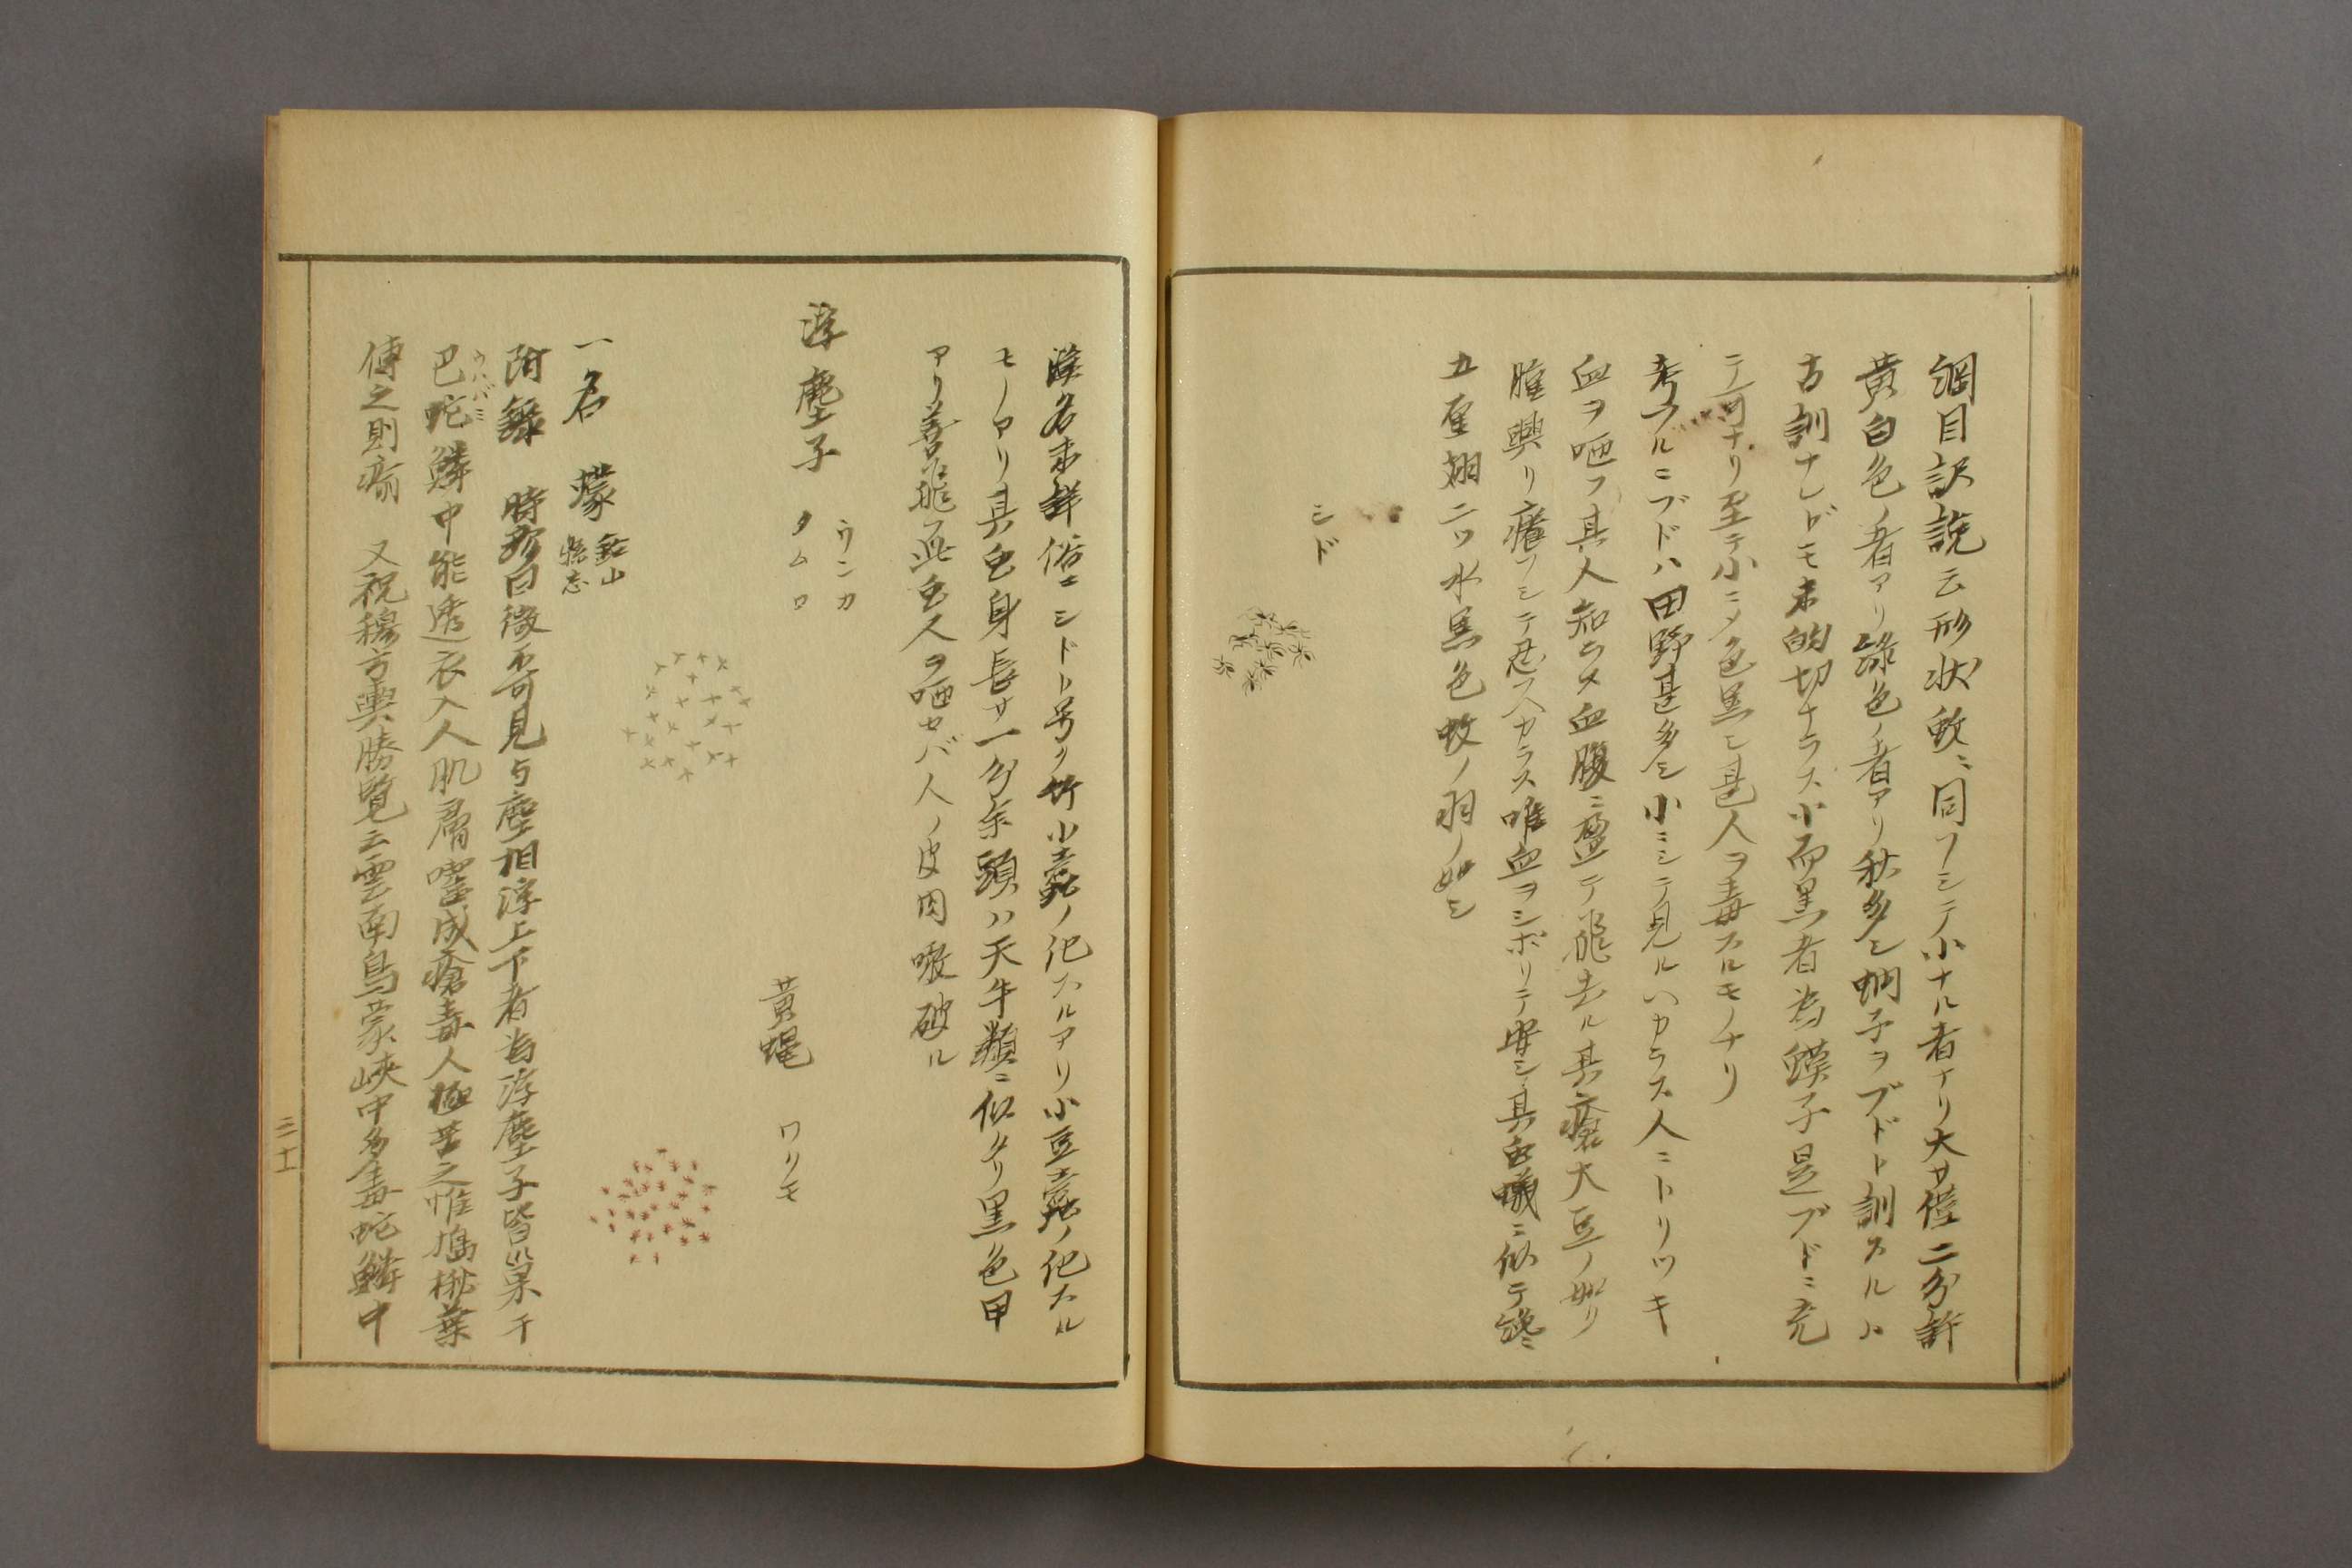 綱目訳説云形状蚊ニ同フシテ小ナル者ナリ大サ僅二分許
黄白色ノ者アリ緑色ノ者アリ秋多シ蚋子ヲブドト訓スルハ
古訓ナレドモ未的切ナラス小而黒者為蟆子是ブドニ充
テ可ナリ至テ小ニメ色黒シ甚人ヲ毒スルモノナリ
考フルニブドハ田野甚多シ小ニシテ見ルヘカラス人ニトリツキ
血ヲ咂フ其人知ラメ血腹ニ盈テ飛去ル其瘡大豆ノ如リ
腫興リ癢フシテ忍フヘカラス唯血ヲシボリテ安シ其虫蟻ニ似テ
五厘翅二ツ水黒色蚊ノ羽ノ如シ
シド
漢名未詳俗ニシドト号ク竹小蠧ノ化スルアリ小豆蠧ノ化スル
モノアリ具虫身長サ一分余頭ハ天牛類ニ似タリ黒色甲
アリ善飛此虫人ヲ咂セバ人ノ皮肉破ル
浮塵子
ウンカ
タムロ
黄蝿 ワリモ
一名 蠓 鉛山縣志
附録 時珍曰微不可見与塵相浮上下者為浮塵子皆巣于
巴蛇鱗中能透衣入人肌膚囓成瘡毒人極苦之惟搗楸葉
ウハバミ
傅之則瘉 又祝穆方輿勝覧云雲南烏蒙峡中多毒蛇鱗中
三十